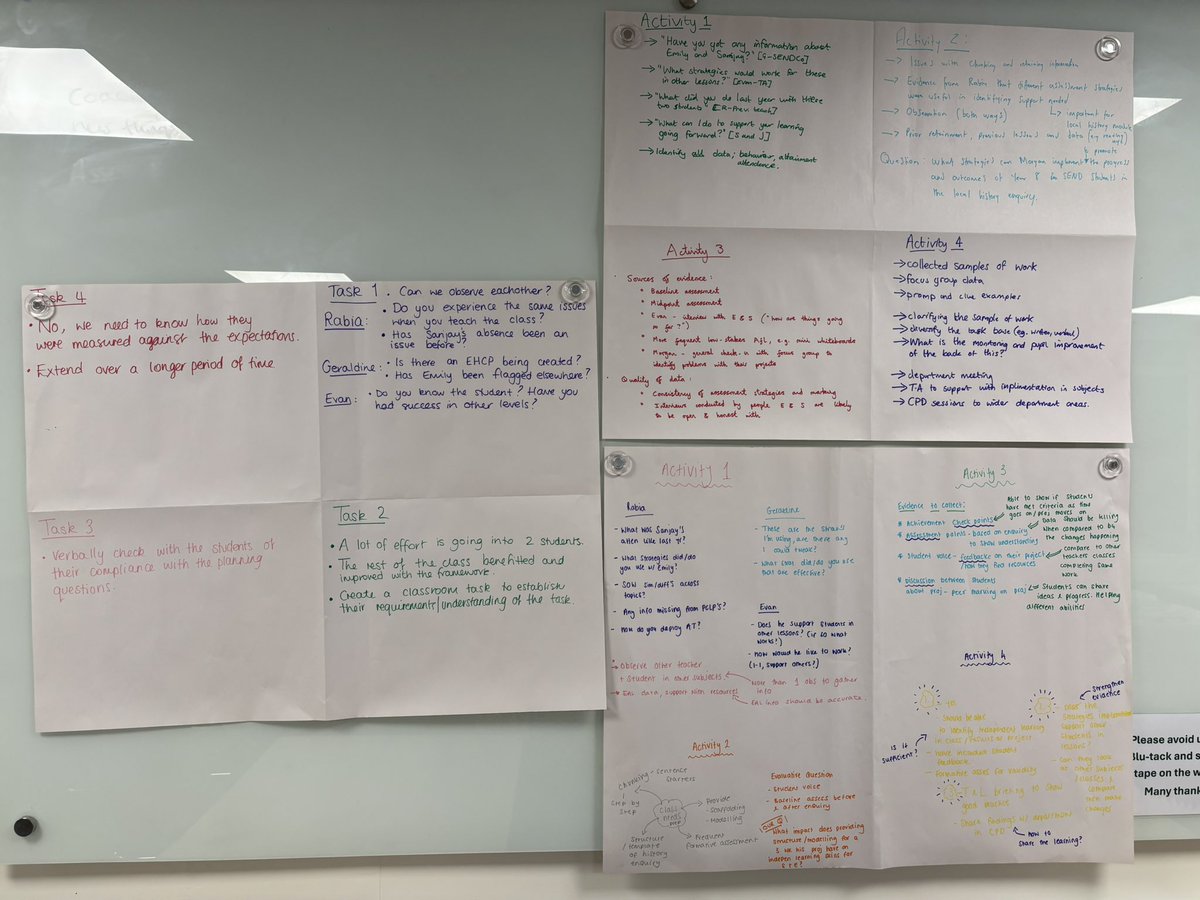 Task 4
• No, we need to know how they
were measured against the expectations.
• Extend over a longer period of time
Task 1
• Can we observe eachother?
Rabia:
• Do you experience the same issues
when you teach the class?
• Has Sanjay's absence been an
issue before?
Geraldine:
• Is there an EHCP being created?
• Has Emily been flagged elsewhere?
Evan:
• Do you know the student? Have you
had success in other levels?
Task 3
• Verbally check with the students of
their compliance with the planning
questions.
Task 2
• A lot of effort is going into 2 students.
• The rest of the class benefitted and
improved with the framework.
• Create a classroom task to establish
their requirements/understanding of the task.
Activity 1
→ "Have you got any information about
Emily and Sanjay?" [G-SENDCo]
→ "What strategies would work for these
in other lessons?" [Evan-TA]
→ "What did you do last year with these
two students"
→ "What can I do to support your learning
going forward?" [S and J]
→ Identify data; behaviour, attainment
attendence.
Activity 2:
→ Issues with chunking and retaining information
→ Evidence from Rabia that different assessment strategies
were useful in identifying support needed
→ Observation (both ways)
↳ important for
local history module
→ Prior retainment, previous lessons and data (eg reading
age)
& promote
Question: What strategies can Morgan implement the progress
and outcomes of Year 8 SEND students in
the local history enquiry.
Activity 3
· Sources of evidence:
• Baseline assessment
• Midpoint assessment
• Evan - interview with E & S ("how are things going
so far?")
• More frequent low-stakes AfL, e.g. mini whiteboards
• Morgan - general check-in with focus group to
identify problems with their projects
· Quality of data:
• Consistency of assessment strategies and marking
• Interviews conducted by people E & S are likely
to be open & honest with
Activity 4
→ collected samples of work
→ focus group data
→ promp and clue examples
→ clarifying the sample of work
→ diversify the task base (eg. written, verbal)
→ What is the monitoring and pupil improvement
of the back of this?
→ department meeting
→ TA to support with implimentation in subjects
→ CPD sessions to wider department areas.
Activity 1
Rabia
- What was Sanjay's
atten like last yr?
- What strategies did/do
you use w/ Emily?
- SOW sim/diffs across
topics?
- Any info missing from PCLP's?
- How do you deploy AT?
Geraldine
- These are the strats
I'm using, are there any
I could tweak?
- What strat did/do you use
that are effective?
Evan
- Does he support students in
other lessons? (if so what
works?)
- How would he like to work?
(1-1, support others?)
- Observe other teacher
+ Student in other subjects
More than 1 obs to gather
info
- EAL data, support with resources
EAL info should be accurate.
Activity 2
Chunking - sentence
starters
Step by
step
Class
needs
Provide
- Scaffolding
- Modelling
Structure
/template
of history
enquiry
Frequent
formative assessment
Evaluative Question
- Student voice
- Baseline assess before
& after enquiry
Our Q
What impact does providing
structure/modelling for a
3 wk his proj have on
indepen learning skills for
S + E?
Activity 3
Evidence to collect:
Achievement check points
Able to show if students
have met criteria as time
goes on/proj moves on
Assessment points - based on enquiry
to show understanding
Data should be telling
when compared to b4
the changes happening
Student voice - feedback on their project
/how they find resources
compare to other
teachers classes
completing same
work
Discussion between students
about proj - peer marking on proj
Students can share
ideas & progress. Helping
different abilities
Activity 4
1
- Should be able
to identify
in class/results of project
- have included student
feedback
- Formative asses for validity
Is it
sufficient?
2
strengthen
evidence
- Does the
strategies implemented
support other
students in
lessons?
- Can they look
at other subjects
/classes &
compare
then make
changes
3
T&L briefing to show
good practice
- Share findings w/ department
in CPD
how to
share the learning?
Please avoid u
Blu-tack and s
tape on the w
Many thank